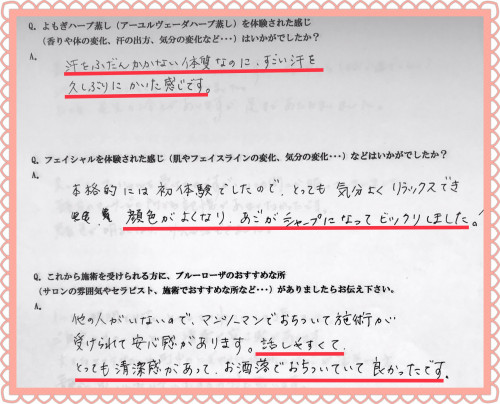 Q. よもぎハーブ蒸し（アーユルヴェーダハーブ蒸し）を体験された感じ
（香りや体の変化、汗の出方、気分の変化など・・・）はいかがでしたか？
A.
汗をふだんかかない体質なのに、すごい汗を
久しぶりにかいた感じです。
Q. フェイシャルを体験された感じ（肌やフェイスラインの変化、気分の変化・・・）などはいかがでしたか？
A.
本格的には初体験でしたので、とっても気分よくリラックスでき
顔色がよくなり、あごがシャープになってビックリしました。！
Q. これから施術を受けられる方に、ブルーローザのおすすめな所
（サロンの雰囲気やセラピスト、施術でおすすめな所など・・・）がありましたらお伝え下さい。
A.
他の人がいないので、マンツーマンでおちついて施術が
受けられて安心感があります。話しやすくて、
とっても清潔感があって、お洒落でおちついていて良かったです。